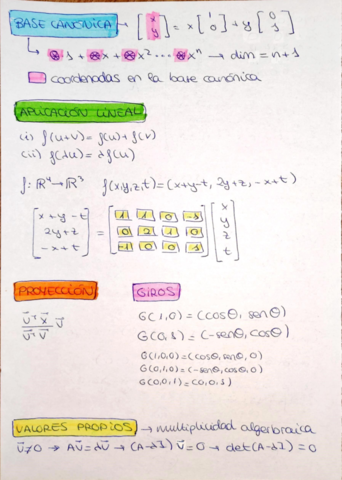 BASE CANÓNICA → [x y] = x [1 0] + y [0 1]
↳ ⊗ 1 + ⊗x + ⊗x² ... ⊗xⁿ → dim = n+1
coordenadas en la base canónica
APLICACIÓN LINEAL
(i) f(u+v) = f(u) + f(v)
(ii) f(λu) = λf(u)
f: ℝ⁴ → ℝ³ f(x,y,z,t) = (x+y-t, 2y+z, -x+t)
[x+y-t 2y+z -x+t] = [1 1 0 -1 0 2 1 0 -1 0 0 1] [x y z t]
PROYECCIÓN
GIROS
v⃗ᵀ x⃗ / v⃗ᵀ v⃗ v⃗
G(1,0) = (cosθ, senθ)
G(0,1) = (-senθ, cosθ)
G(1,0,0) = (cosθ, senθ, 0)
G(0,1,0) = (-senθ, cosθ, 0)
G(0,0,1) = (0,0,1)
VALORES PROPIOS → multiplicidad algebraica
v⃗≠0 → Av⃗ = λv⃗ → (A-λI) v⃗ = 0 → det(A-λI) = 0